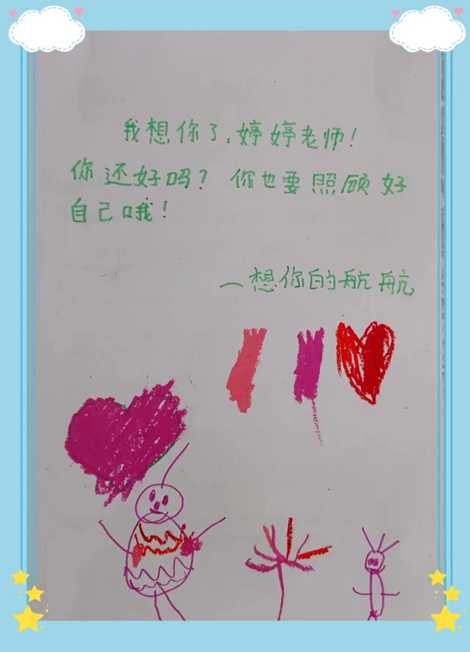 我想你了，婷婷老师！
你还好吗？你也要照顾好
自己哦！
—想你的航航